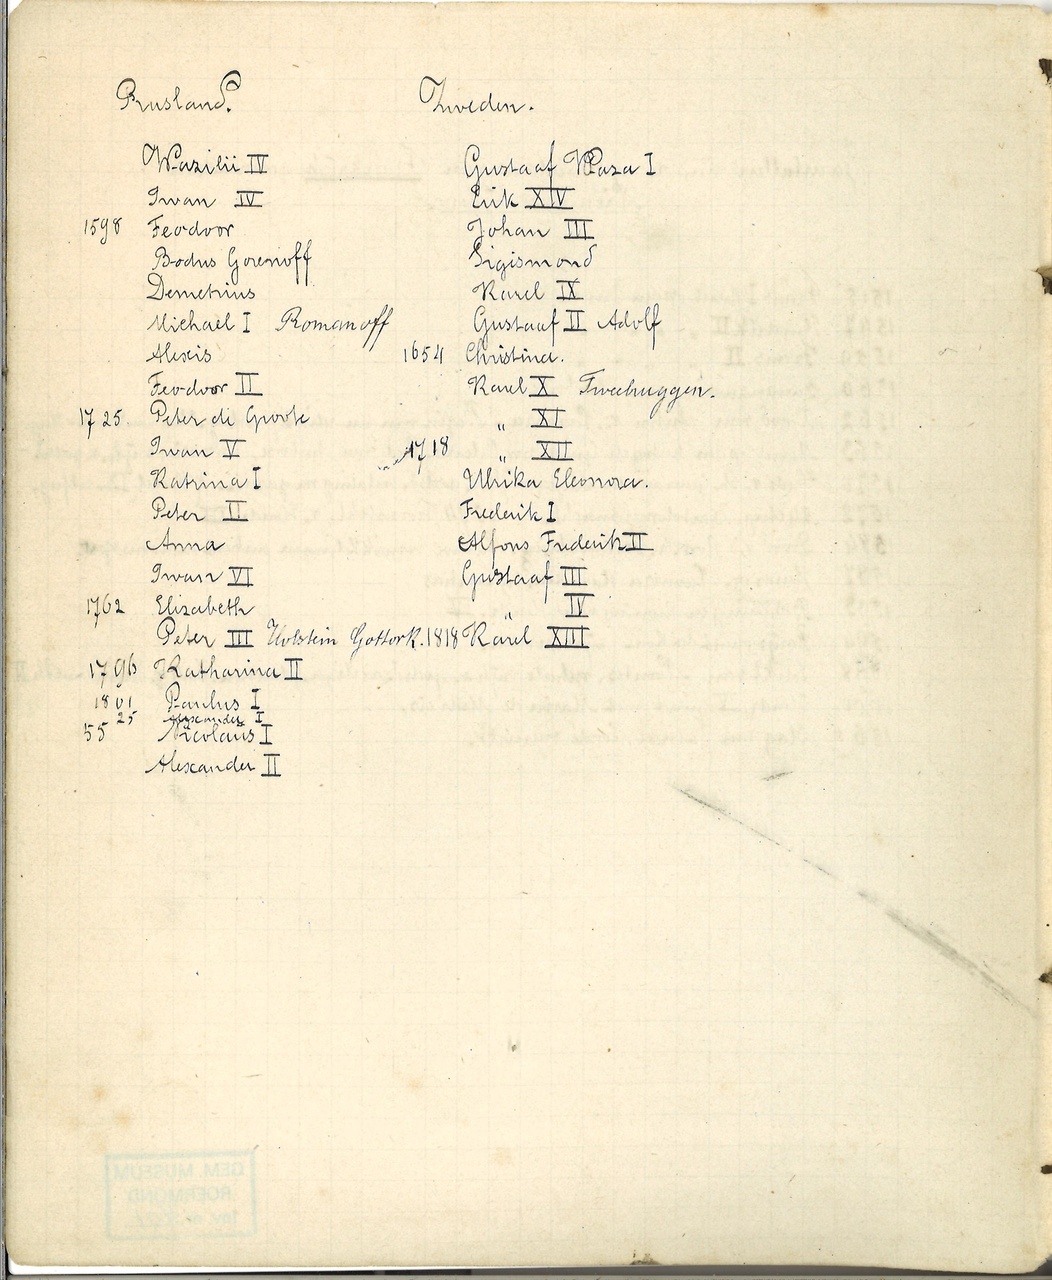 Rusland.
Wazilii IV
Iwan IV
1598 Feodoor
Bodus Gorenoff
Demetrius
Michael I Romanoff
Alexis
Feodoor II
1725. Peter de Groote
Iwan V
Katrina I
Peter II
Anna
Iwan VI
1762 Elizabeth
Peter III Holstein Gottork.
1796 Katharina II
1801 Paulus I
25 Alexander I
55 Nicolaus I
Alexander II
Zweden.
Gustaaf Waza I
Erik XIV
Johan III
Sigismond
Karel IX
Gustaaf II Adolf
1654 Christina.
Karel X Tweebruggen.
" XI
1718 " XII
Ulrika Eleonora.
Frederik I
Alfons Frederik II
Gustaaf III
" IV
1818 Karel XIII
GEM MUSEUM
ROERMOND